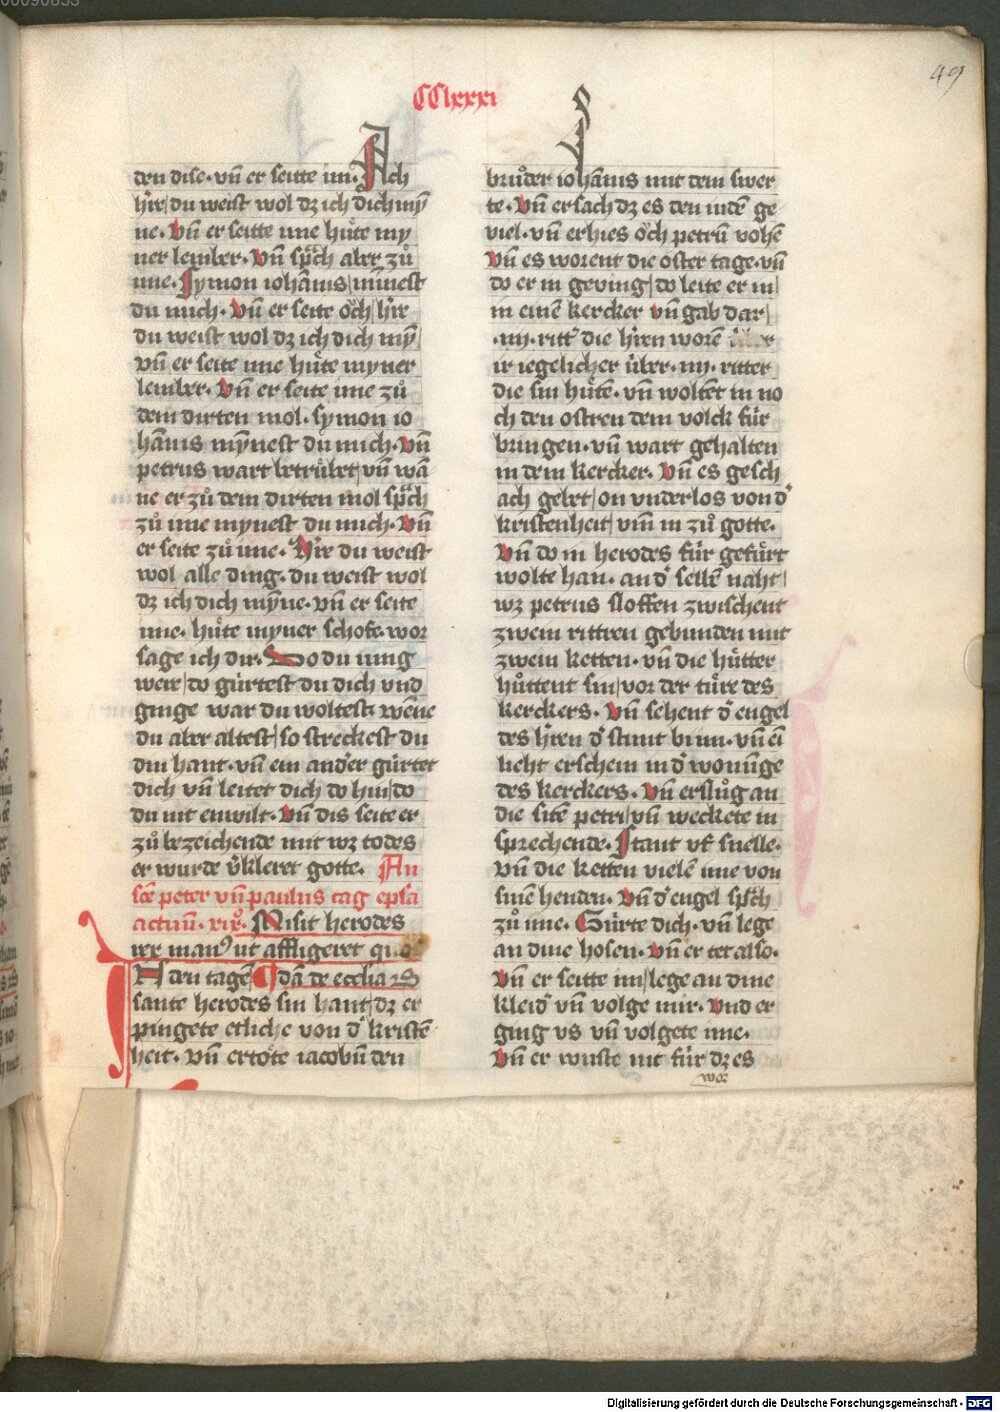 49
CClxxxi
den dise · vn̄ er seitte im · Ach
h're du weist wol dz ich dich mȳ
ne · Vn̄ er seitte ime hu̍te my
ner lember · Vn̄ sp̄ch aber zů
ime · Symon iohānis minnest
du mich · Vn̄ er seite o̍ch h're
du weist wol dz ich dich mȳ
vn̄ er seite ime hu̍te myner
lember · Vn̄ er seite ime zů
dem dirten mol · symon io
hānis mȳnest du mich · Vn̄
petrus wart betru̍bet vn̄ wā
ne er zů dem dirten mol sp̄ch
zů ime mynest du mich · Vn̄
er seite zů ime · H're du weist
wol alle ding · du weist wol
dz ich dich mȳne · vn̄ er seite
ime · hu̍te myner schofe · wor
sage ich dir · Do du iung
were do gürtest du dich vnd
ginge war du woltest · wēne
du aber altest so streckest du
din hant · vn̄ ein and'er gürtet
dich vn̄ leitet dich do hin do
du nit enwilt · Vn̄ dis seite er
zů bezeichende mit wz todes
er wurde v̍kleret gotte · An
sc̄e peter vn̄ paulus tag epl̄a
actuū · xix° · Misit herodes
rex man⁹ ut affligeret quos
dā de eccl'ia
In den tagē
sante herodes sin hant dz er
pingete etliche von d' kristē
heit · vn̄ ertöte iacobū den
brůder iohānis mit dem swer
te · Vn̄ er sach dz es den iudē ge
viel · vn̄ er hies o̍ch petrū vohē
Vn̄ es worent die oster tage · vn̄
do er in geving do leite er in
in einē kercker vn̄ gab dar
· iiij · ritt' die h'ren worē über
ir iegelicher über · iiij · ritter
die sin hu̍tē · vn̄ woltēt in no
ch den ostren dem volck für
bringen · vn̄ wart gehalten
in dem kercker · Vn̄ es gesch
ach gebet on vnderlos von d'
kristenheit vmī in zů gotte ·
Vn̄ do in herodes für gefürt
wolte han · an d' selbē naht
wz petrus sloffen zwischent
zwein rittren gebunden mit
zwein ketten · vn̄ die hu̍tter
hu̍ttent sin vor der türe des
kerckers · Vn̄ sehent d' engel
des h'ren d' stunt bi im · vn̄ ei
lieht erschein in d' wonūge
des kerckers · Vn̄ er slůg an
die sitē petri vn̄ weckete in
sprechende · Stant vf snelle ·
Vn̄ die ketten vielen ime von
sinen henden · Vn̄ d' engel sp̄ch
zů ime · Gürte dich · vn̄ lege
an dine hosen · Vn̄ er tet also ·
Vn̄ er seitte im lege an dine
kleid' vn̄ volge mir · Vnd er
ging vs vn̄ volgete ime ·
Vn̄ er wuste nit für dz es
wor
Digitalisierung gefördert durch die Deutsche Forschungsgemeinschaft - DFG